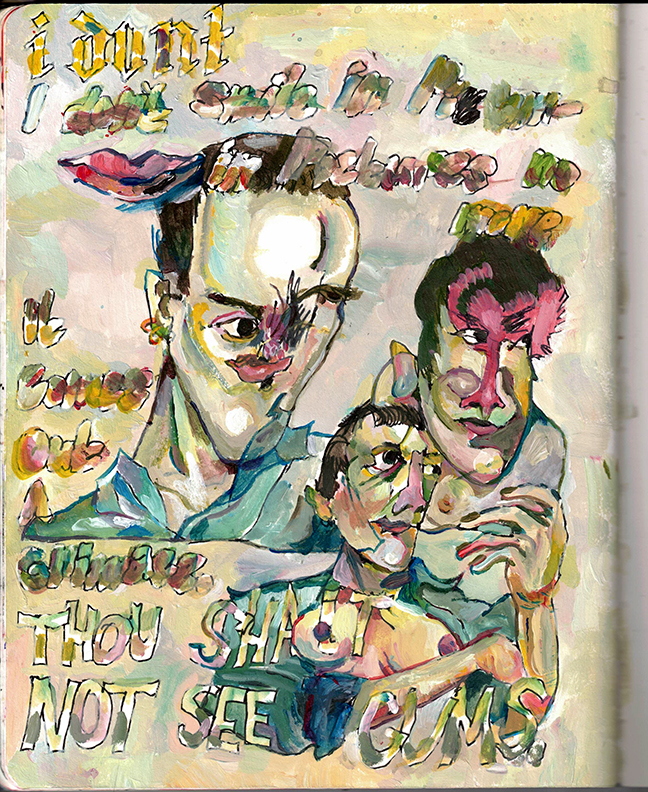 i dont
I dont smile in
in Pictures no
more.
It
Comes
Out
A
Grimace.
THOU SHALT
NOT SEE GUMS.